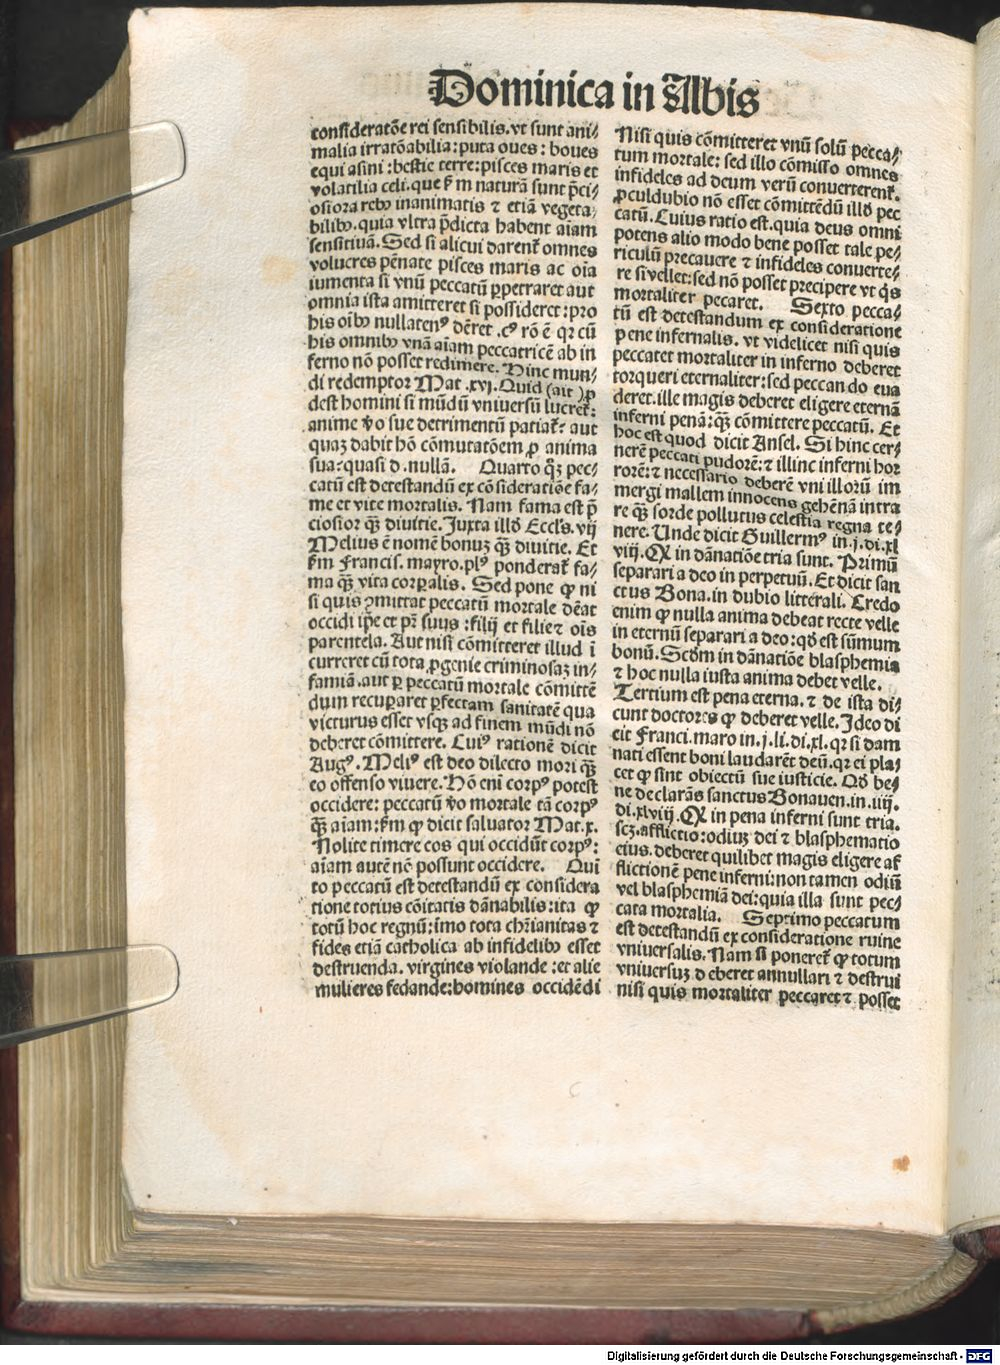 Dominica in Albis
consideratōe rei sensibilis. vt sunt ani/
malia irratōabilia: puta oues: boues
equi asini: bestie terre: pisces maris et
volatilia celi. que ẜm naturā sunt p̄ci/
osiora rebꝰ inanimatis ⁊ etiā vegeta/
bilibꝰ. quia vltra p̄dicta habent aīam
sensitiuā. Sed si alicui darent᷑ omnes
volucres pēnate pisces maris ac oīa
iumenta si vnū peccatū ꝑpetraret aut
omnia ista amitteret si possideret: pro
his oībꝰ nullatenꝰ dēret. cꝰ rō ē qꝛ cū
his omnibꝰ vnā aīam peccatricē ab in
ferno nō posset redimere. Hinc mun/
di redemptor Mat. xvj. Quid (ait) ꝓ
dest homini si mūdū vniuersū lucret᷑:
anime ꝟo sue detrimentū patiat᷑: aut
quaꝫ dabit hō cōmutatōem ꝓ anima
sua: quasi d. nullā. Quarto qꝫ̄ pec/
catū est detestandū ex cōsideratiōe fa/
me et vite mortalis. Nam fama est p̄
ciosior qꝫ̄ diuitie. Juxta illd̄ Eccl's. vij
Melius ē nomē bonuꝫ qꝫ̄ diuitie. Et
ẜm Francis. mayro. plꝰ ponderat᷑ fa/
ma qꝫ̄ vita corꝑalis. Sed pone ꝙ ni
si quis ꝯmittat peccatū mortale dēat
occidi ip̄e et pr̄ suus: filij et filie ⁊ oīs
parentela. Aut nisi cōmitteret illud ī
curreret cū tota ꝓgenie criminosaꝫ in/
famiā. aut ꝑ peccatū mortale cōmittē
dum recuꝑaret ꝑfectam sanitatē qua
victurus esset vsqꝫ ad finem mūdi nō
deberet cōmittere. Cuiꝰ rationē dicit
Augꝰ. Meliꝰ est deo dilecto mori qꝫ̄
eo offenso viuere. Hō enī corpꝰ potest
occidere: peccatū ꝟo mortale tā corpꝰ
qꝫ̄ aīam: ẜm ꝙ dicit saluator Mat. x.
Nolite timere eos qui occidūt corpꝰ:
aīam autē nō possunt occidere. Qui
to peccatū est detestandū ex considera
tione totius cōitatis dānabilis: ita ꝙ
totū hoc regnū: imo tota chr̄ianitas ⁊
fides etiā catholica ab infidelibꝰ esset
destruenda. virgines violande: et alie
mulieres fedande: homines occidēdi
Nisi quis cōmitteret vnū solū pecca/
tum mortale: sed illo cōmisso omnes
infideles ad deum verū conuerterent᷑.
ꝓculdubio nō esset cōmittēdū illd̄ pec
catū. Cuius ratio est. quia deus omni
potens alio modo bene posset tale pe/
riculū precauere ⁊ infideles conuerte/
re si vellet: sed nō posset precipere vt q̇s
mortaliter peccaret. Sexto pecca/
tū est detestandum ex consideratione
pene infernalis. vt videlicet nisi quis
peccatet mortaliter in inferno deberet
torqueri eternaliter: sed peccando eua
deret. ille magis deberet eligere eternā
inferni penā: qꝫ̄ cōmittere peccatū. Et
hoc est quod dicit Ansel. Si hinc cer/
nerē peccati pudorē: ⁊ illinc inferni hor
rorē: ⁊ necessario deberē vni illorū im
mergi mallem innocens gehēnā intra
re qꝫ̄ sorde pollutus celestia regna te/
nere. Unde dicit Guillermꝰ in. j. di. xl
viij. Ꝙ in dānatiōe tria sunt. Primū
separari a deo in perpetuū. Et dicit san
ctus Bona. in dubio litterali. Credo
enim ꝙ nulla anima debeat recte velle
in eternū separari a deo: qd̄ est sūmum
bonū. Scd̄m in dānatiōe blasphemia
⁊ hoc nulla iusta anima debet velle.
Tertium est pena eterna. ⁊ de ista di/
cunt doctores ꝙ deberet velle. Ideo di
cit Franci. maro in. j. li. di. xl. qꝛ si dam
nati essent boni laudarēt deū. qꝛ ei pla/
cet ꝙ sint obiectū sue iusticie. Qd̄ be/
ne declarās sanctus Bonauen. in. iiij.
di. xlviij. Ꝙ in pena inferni sunt tria.
scꝫ. afflictio: odiuꝫ dei ⁊ blasphematio
eius. deberet quilibet magis eligere af
flictionē pene inferni: non tamen odiū
vel blasphemiā dei: quia illa sunt pec/
cata mortalia. Septimo peccatum
est detestandū ex consideratione ruine
vniuersalis. Nam si poneret᷑ ꝙ totum
vniuersuꝫ deberet annullari ⁊ destrui
nisi quis mortaliter peccaret ⁊ posset
Digitalisierung gefördert durch die Deutsche Forschungsgemeinschaft - DFG